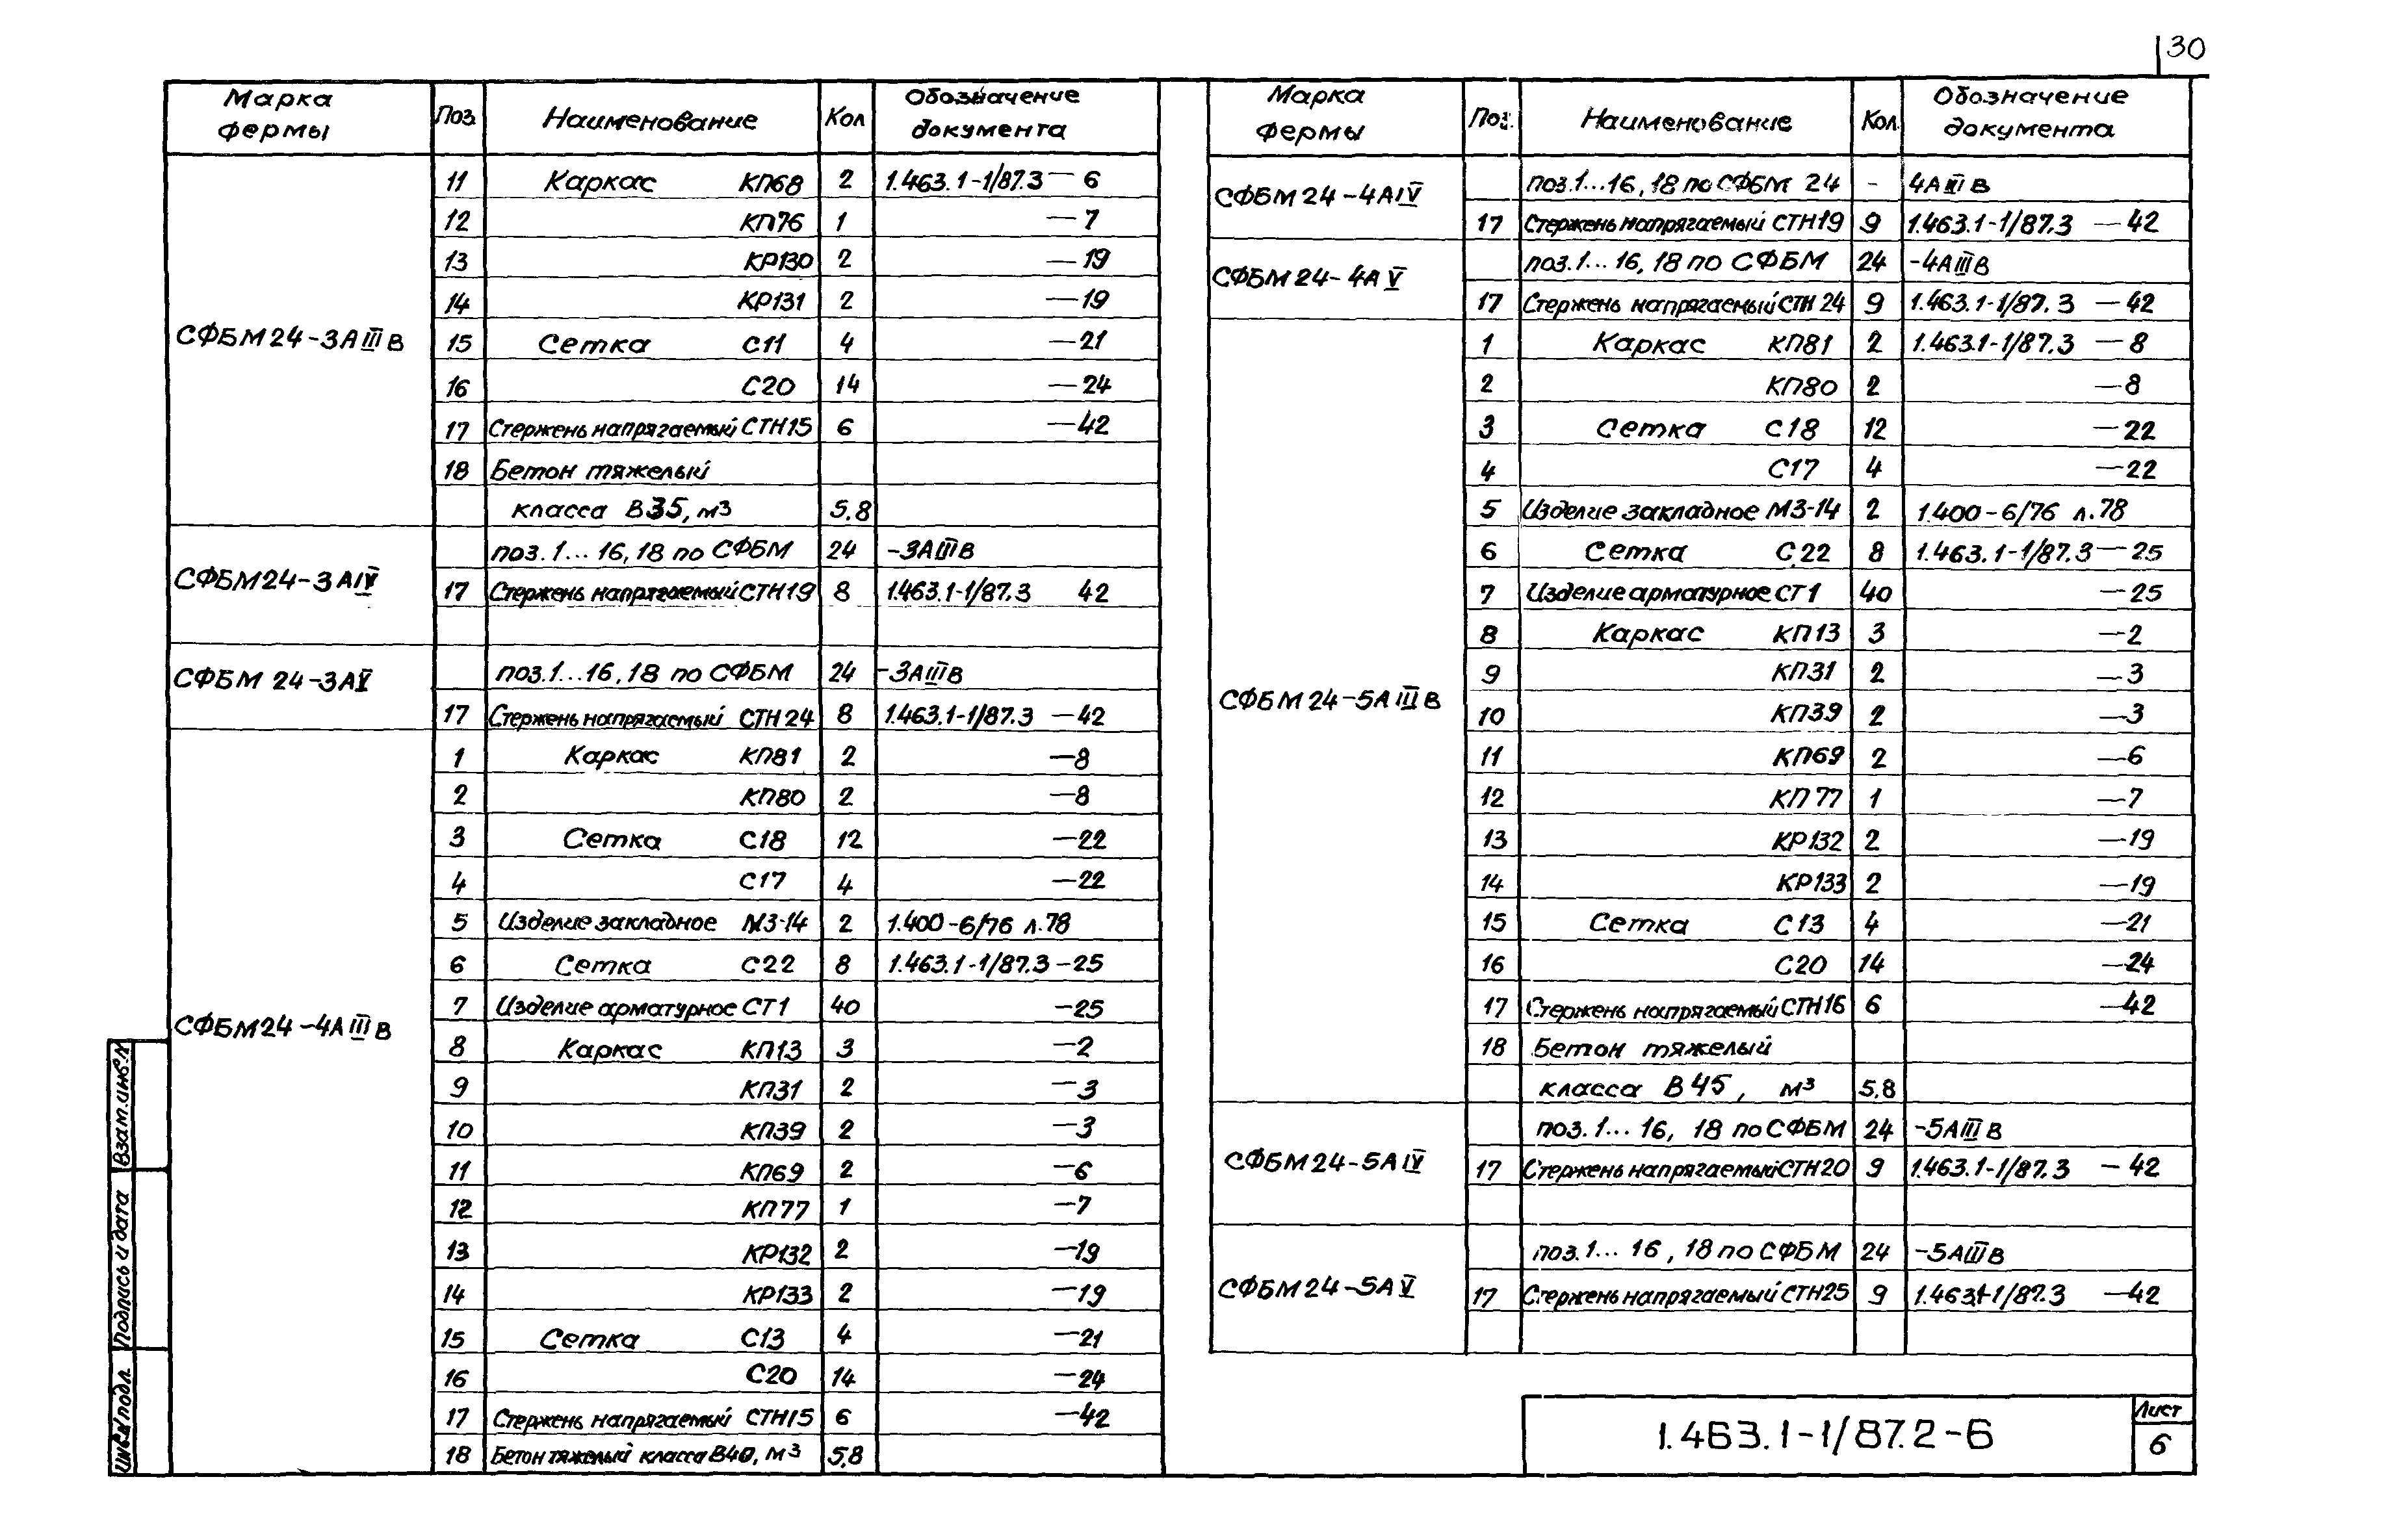 30
Марка фермы Поз. Наименование Кол Обозначение документа
СФБМ24-3АIIIВ
11 Каркас КП68 2 1.463.1-1/87.3—6
12 КП76 1 —7
13 КР130 2 —19
14 КР131 2 —19
15 Сетка С11 4 —21
16 С20 14 —24
17 Стержень напрягаемый СТН15 6 —42
18 Бетон тяжелый
класса В35, м3 5,8
СФБМ24-3АIV
поз. 1...16, 18 по СФБМ 24 -3АIIIВ
17 Стержень напрягаемый СТН19 8 1.463.1-1/87.3 42
СФБМ 24-3АV
поз. 1...16, 18 по СФБМ 24 -3АIIIВ
17 Стержень напрягаемый СТН24 8 1.463.1-1/87.3 —42
СФБМ24-4АIIIВ
1 Каркас КП81 2 —8
2 КП80 2 —8
3 Сетка С18 12 —22
4 С17 4 —22
5 Изделие закладное М3-14 2 1.400-6/76 л.78
6 Сетка С22 8 1.463.1-1/87.3-25
7 Изделие арматурное СТ1 40 —25
8 Каркас КП13 3 —2
9 КП31 2 —3
10 КП39 2 —3
11 КП69 2 —6
12 КП77 1 —7
13 КР132 2 —19
14 КР133 2 —19
15 Сетка С13 4 —21
16 С20 14 —24
17 Стержень напрягаемый СТН15 6 —42
18 Бетон тяжелый класса В40, м3 5,8
Марка фермы Поз. Наименование Кол. Обозначение документа
СФБМ24-4АIV
поз. 1...16, 18 по СФБМ 24 - 4АIIIВ
17 Стержень напрягаемый СТН19 9 1.463.1-1/87.3 —42
СФБМ24-4АV
поз. 1...16, 18 по СФБМ 24 -4АIIIВ
17 Стержень напрягаемый СТН 24 9 1.463.1-1/87.3 —42
СФБМ24-5АIIIВ
1 Каркас КП81 2 1.463.1-1/87.3 —8
2 КП80 2 —8
3 Сетка С18 12 —22
4 С17 4 —22
5 Изделие закладное М3-14 2 1.400-6/76 л.78
6 Сетка С22 8 1.463.1-1/87.3—25
7 Изделие арматурное СТ1 40 —25
8 Каркас КП13 3 —2
9 КП31 2 —3
10 КП39 2 —3
11 КП69 2 —6
12 КП77 1 —7
13 КР132 2 —19
14 КР133 2 —19
15 Сетка С13 4 —21
16 С20 14 —24
17 Стержень напрягаемый СТН16 6 —42
18 Бетон тяжелый
класса В45, м3 5,8
СФБМ24-5АIV
поз. 1...16, 18 по СФБМ 24 -5АIIIВ
17 Стержень напрягаемый СТН20 9 1.463.1-1/87.3 —42
СФБМ24-5АV
поз. 1...16, 18 по СФБМ 24 -5АIIIВ
17 Стержень напрягаемый СТН25 9 1.463.1-1/87.3 —42
Взам.инв.N
Подпись и дата
Инв.N подл.
1.463.1-1/87.2-6
Лист
6